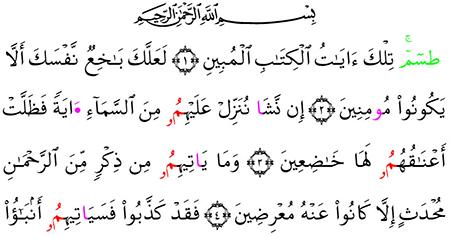 بِسْمِ اللَّهِ الرَّحْمَٰنِ الرَّحِيمِ
طسٓمٓ تِلْكَ ءَايَٰتُ الْكِتَٰبِ الْمُبِينِ ﴿١﴾ لَعَلَّكَ بَٰخِعٌ نَّفْسَكَ أَلَّا
يَكُونُواْ مُومِنِينَ ﴿٢﴾ إِن نَّشَا نُنَزِّلْ عَلَيْهِمُۥ مِنَ السَّمَآءِ ءَايَةً فَظَلَّتْ
أَعْنَٰقُهُمُۥ لَهَا خَٰضِعِينَ ﴿٣﴾ وَمَا يَاتِيهِمُۥ مِن ذِكْرٍ مِّنَ الرَّحْمَٰنِ
مُحْدَثٍ إِلَّا كَانُواْ عَنْهُ مُعْرِضِينَ ﴿٤﴾ فَقَدْ كَذَّبُواْ فَسَيَاتِيهِمُۥ أَنۢبَٰٓؤُاْ